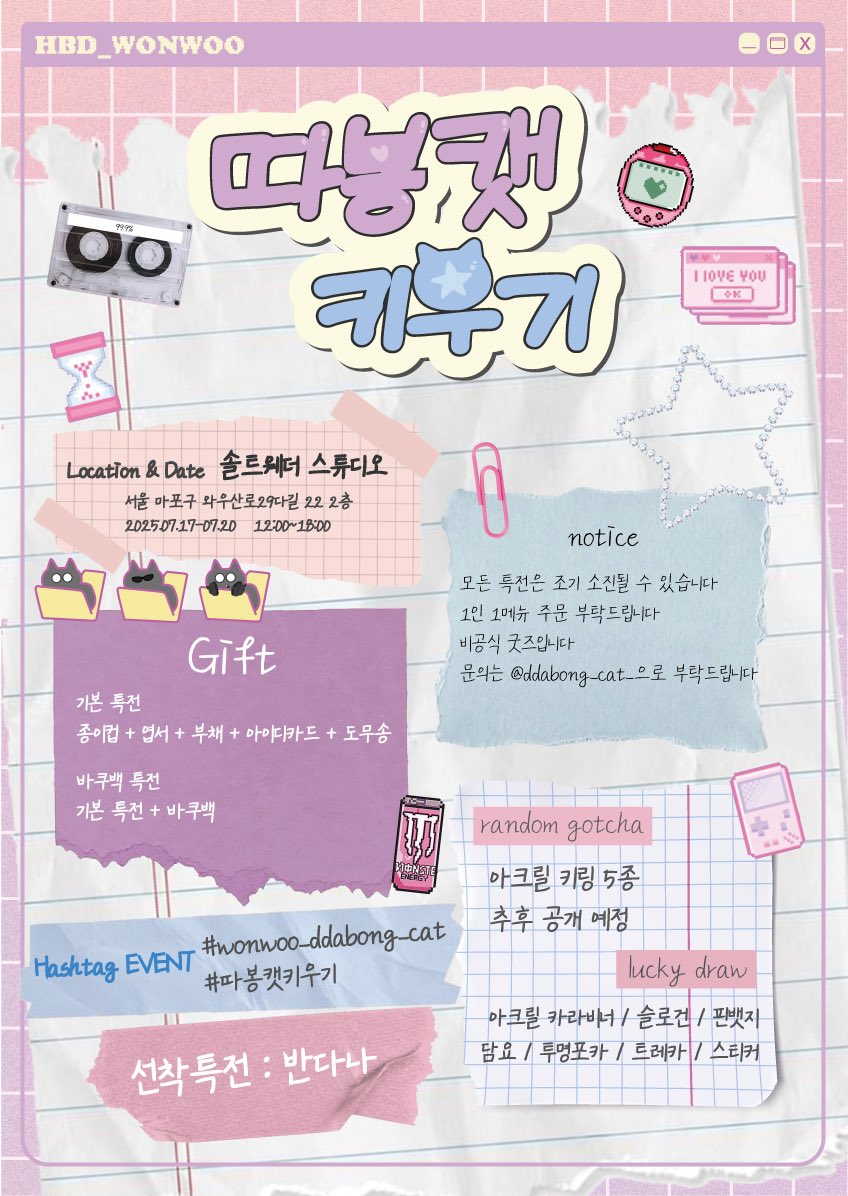 HBD_WONWOO
X
따봉캣
키우기
99.9%
I LOVE YOU
OK
Location & Date 솔트웨더 스튜디오
서울 마포구 와우산로29다길 22 2층
2025.07.17-07.20 12:00~18:00
notice
모든 특전은 조기 소진될 수 있습니다
1인 1메뉴 주문 부탁드립니다
비공식 굿즈입니다
문의는 @ddabong_cat_으로 부탁드립니다
Gift
기본 특전
종이컵 + 엽서 + 부채 + 아이디카드 + 도무송
바쿠백 특전
기본 특전 + 바쿠백
MONSTE
ENERGY
random gotcha
아크릴 키링 5종
추후 공개 예정
lucky draw
아크릴 카라비너 / 슬로건 / 핀뱃지
담요 / 투명포카 / 트레카 / 스티커
Hashtag EVENT #wonwoo_ddabong_cat
#따봉캣키우기
선착특전 : 반다나